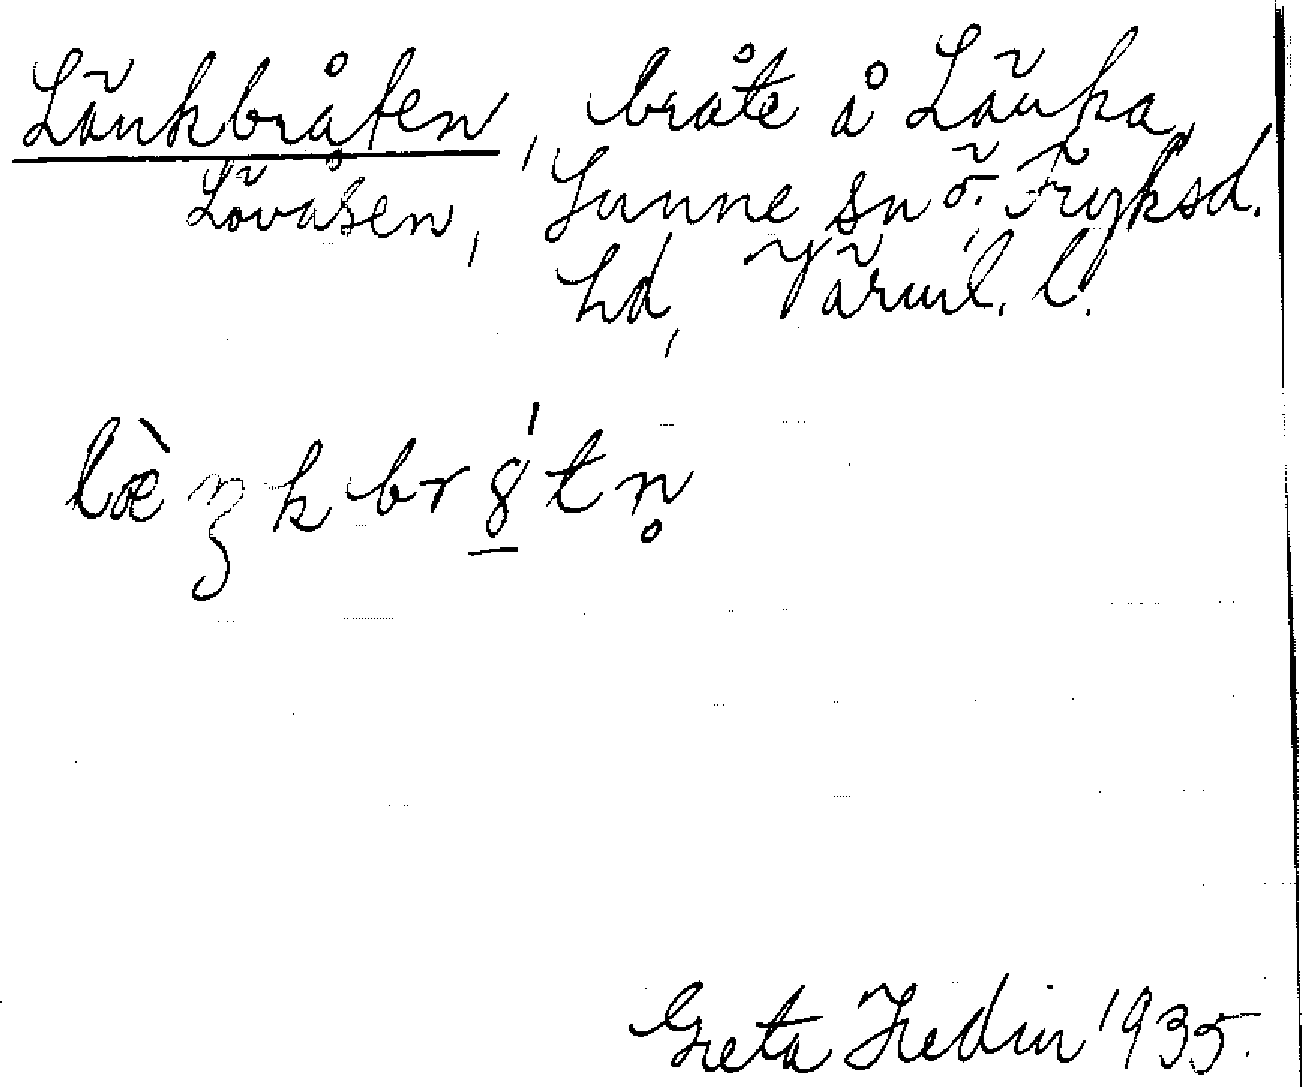 Länkbråten, bråte å Länka,
Lövåsen, Sunne sn Ö. Fryksd.
hd, Värml. l.
læ̀ŋkbr8́tn̥
Greta Hedin 1935.